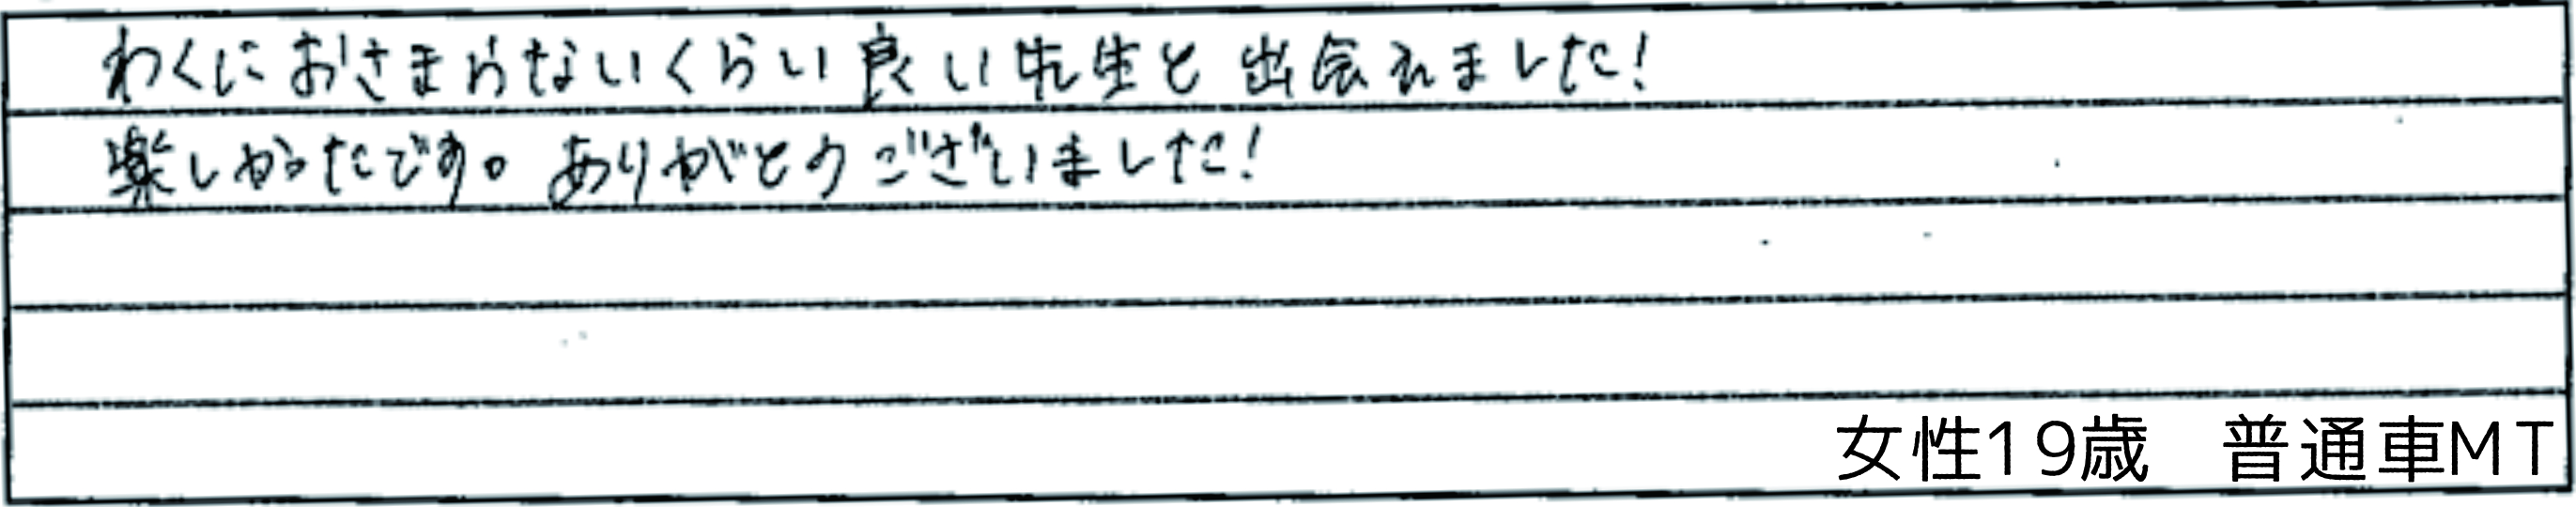 わくにおさまらないくらい良い先生と出会えました!
楽しかったです。ありがとうございました!
女性19歳　普通車MT